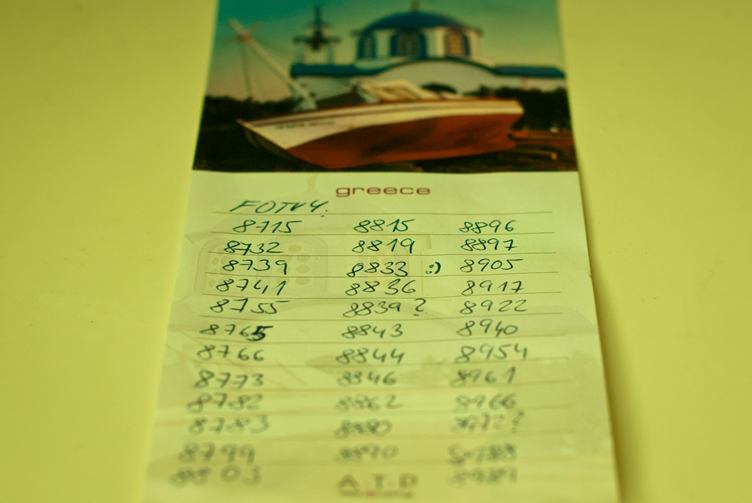 greece
FOTKY:
8715 8815 8896
8732 8819 8897
8739 8833 :) 8905
8741 8836 8917
8755 8839? 8922
8765 8843 8940
8766 8844 8954
8773 8846 8961
8782 8862 8966
8783 8880
8799 8890
8803
A.T.D